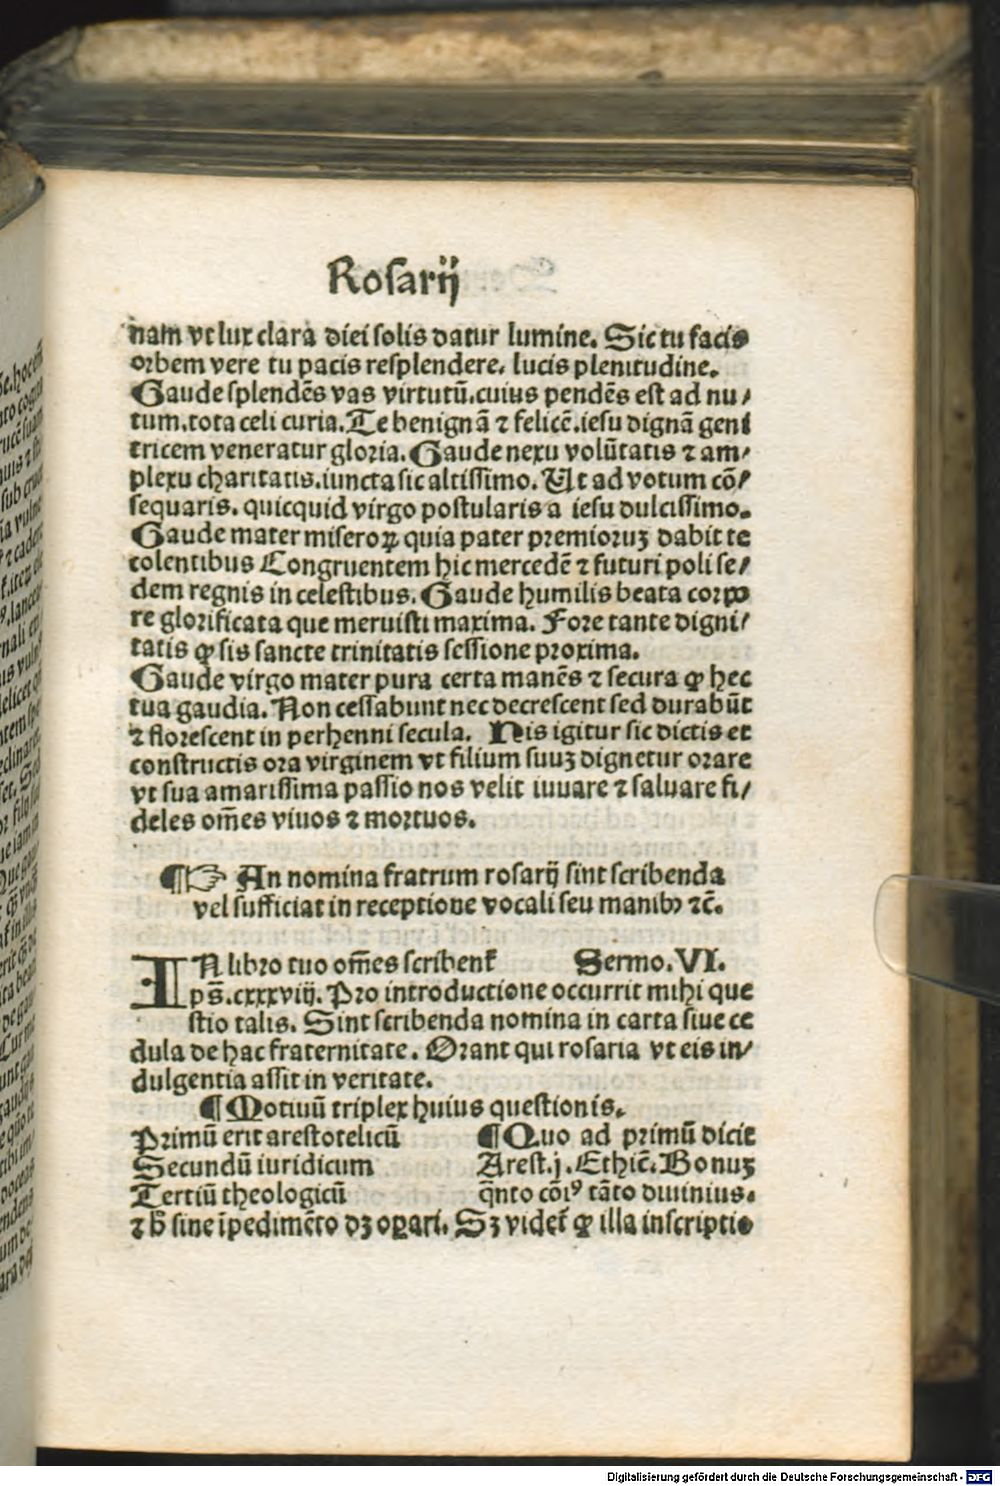 Rosarij
nam vt lux clara diei solis datur lumine. Sic tu facis
orbem vere tu pacis resplendere. lucis plenitudine.
Gaude splendēs vas virtutū.cuius pendēs est ad nu/
tum.tota celi curia.Te benignā ⁊ felicē.iesu dignā geni
tricem veneratur gloria. Gaude nexu volūtatis ⁊ am/
plexu charitatis.iuncta sic altissimo. Ut ad votum cō/
sequaris. quicquid virgo postularis a iesu dulcissimo.
Gaude mater miseroꝝ quia pater premioruꝫ dabit te
colentibus Congruentem hic mercedē ⁊ futuri poli se/
dem regnis in celestibus. Gaude humilis beata corpo
re glorificata que meruisti maxima. Fore tante digni/
tatis ꝙ sis sancte trinitatis sessione proxima.
Gaude virgo mater pura certa manēs ⁊ secura ꝙ hec
tua gaudia. Non cessabunt nec decrescent sed durabūt
⁊ florescent in perhenni secula. His igitur sic dictis et
constructis ora virginem vt filium suuꝫ dignetur orare
vt sua amarissima passio nos velit iuuare ⁊ saluare fi/
deles om̄es viuos ⁊ mortuos.
¶☞ An nomina fratrum rosarij sint scribenda
vel sufficiat in receptione vocali seu manibꝰ ⁊c̄.
IN libro tuo om̄es scribent᷑ Sermo.VI.
ps̄.cxxxviij. Pro introductione occurrit mihi que
stio talis. Sint scribenda nomina in carta siue ce
dula de hac fraternitate. Orant qui rosaria vt eis in/
dulgentia assit in veritate.
¶ Motiuū triplex huius questionis.
Primū erit arestotelicū ¶ Quo ad primū dicit
Secundū iuridicum Arest.j.Ethic̄.Bonuꝫ
Tertiū theologicū q̄nto cōiꝰ tāto diuinius.
⁊ b̄ sine īpedimēto dꝫ oꝑari. Sꝫ videt᷑ ꝙ illa inscriptio
Digitalisierung gefördert durch die Deutsche Forschungsgemeinschaft - DFG